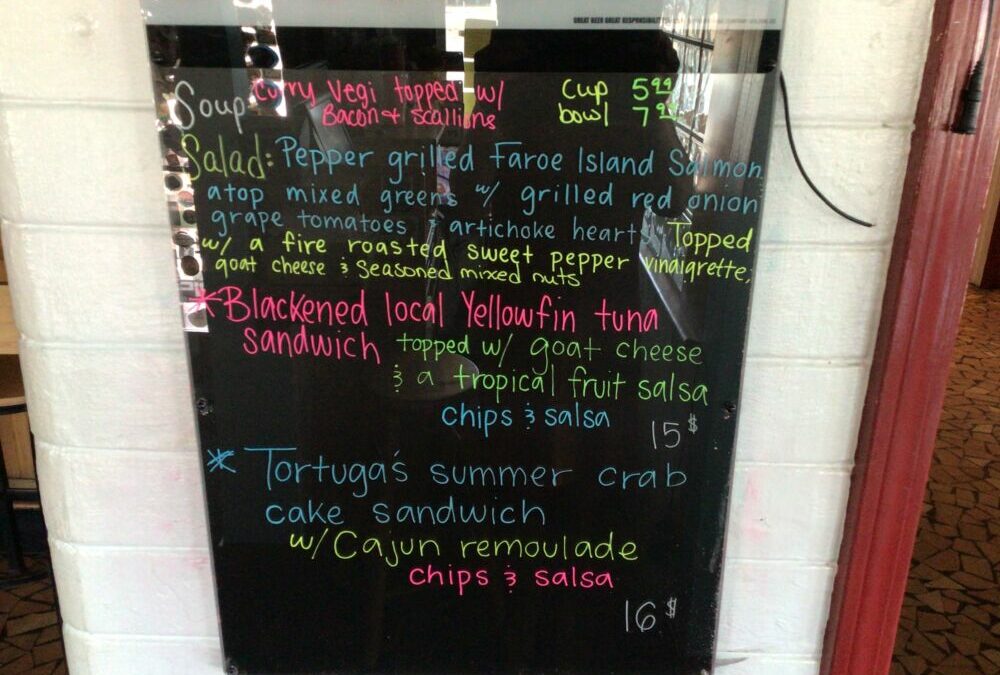 GREAT BEER GREAT RESPONSIBILITY
Soup Curry Vegi topped w/ Cup 5.99
Bacon & Scallions bowl 7.99
Salad: Pepper grilled Faroe Island Salmon
atop mixed greens w/ grilled red onion
grape tomatoes artichoke heart Topped
w/ a fire roasted sweet pepper vinaigrette,
goat cheese & Seasoned mixed nuts
*Blackened local Yellowfin tuna
sandwich topped w/ goat cheese
& a tropical fruit salsa
chips & salsa
15$
* Tortuga's summer crab
cake sandwich
w/ Cajun remoulade
chips & salsa
16$